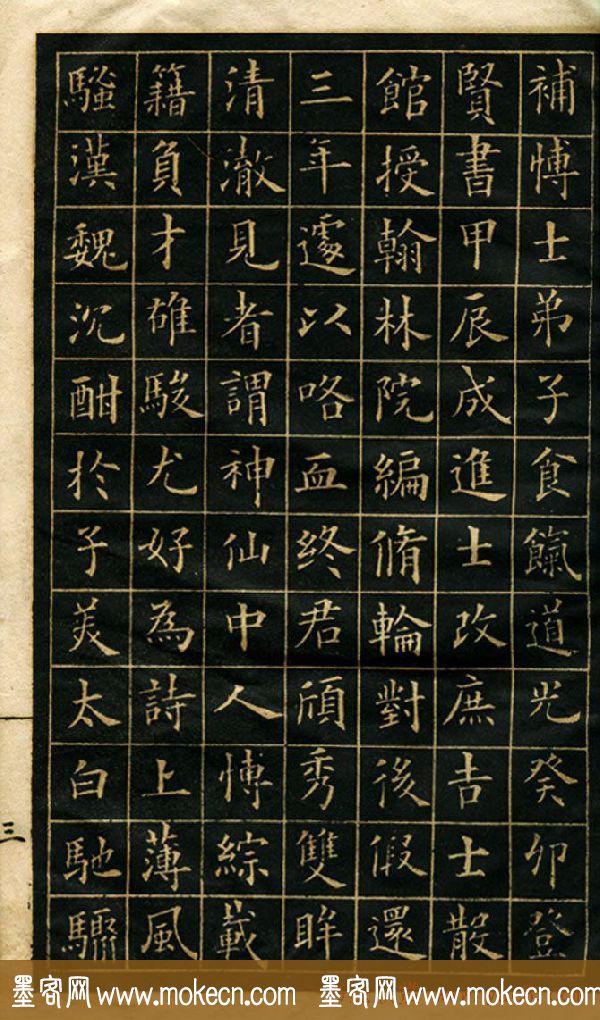 補愽士弟子食餼道光癸卯登
賢書甲辰成進士改庶吉士散
館授翰林院編脩輪對後假還
三年遽以咯血終君頎秀雙眸
清澈見者謂神仙中人愽綜載
籍負才雄駿尤好為詩上薄風
騷漢魏沉酣於子美太白馳驟
三
墨客网 www.mokecn.com 墨客网 www.mokecn.com